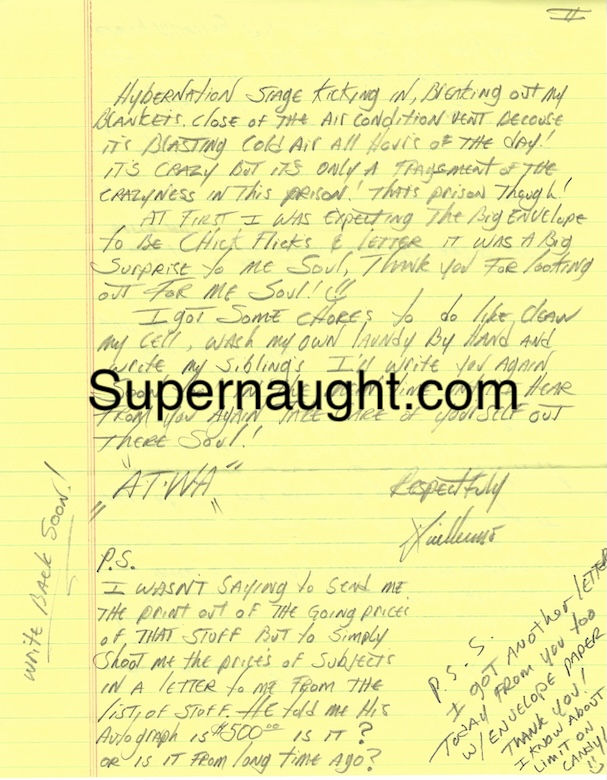 II
HyberNATION STAGE KICKING IN, BREAKING OUT MY
BLANKETS. CLOSE OF THE AIR CONDITION VENT BECOUSE
IT'S BLASTING COLD AIR ALL HOURS OF THE DAY!
IT'S CRAZY BUT ITS ONLY A FRAGSMENT OF THE
CRAZYNESS IN THIS PRISON! THATS PRISON THOUGH!
AT FIRST I WAS EXPECTING THE BIG ENVELOPE
TO BE CHICK FLICKS & LETTER IT WAS A BIG
SURPRISE TO ME SOUL, THANK YOU FOR LOOKING
OUT FOR ME SOUL!
I GOT SOME CHORES TO DO LIKE, CLEAN
MY CELL, WASH MY OWN LAUNDY BY HAND AND
WRITE MY SIBLINGS I'LL WRITE YOU AGAIN
HEAR
Supernaught.com
FROM YOU AGAIN TAKE CARE OF YOURSELF OUT
THERE SOUL!
"AT·WA"
RESPECTFULY
WRITE BACK SOON!
P.S.
I WASN'T SAYING TO SEND ME
THE PRINT OUT OF THE GOING PRICES
OF THAT STUFF BUT TO SIMPLY
SHOOT ME THE PRICE'S OF SUBJECTS
IN A LETTER TO ME FROM THE
LIST, OF STUFF. HE TOLD ME HIS
AUTOGRAPH IS $500⁰⁰ IS IT?
OR IS IT FROM LONG TIME AGO?
P.S.S.
I GOT ANOTHER LETTER
TODAY FROM YOU TOO
W/ENVELOPE PAPER
THANK YOU!
I KNOW ABOUT
LIMIT ON
CANDY!